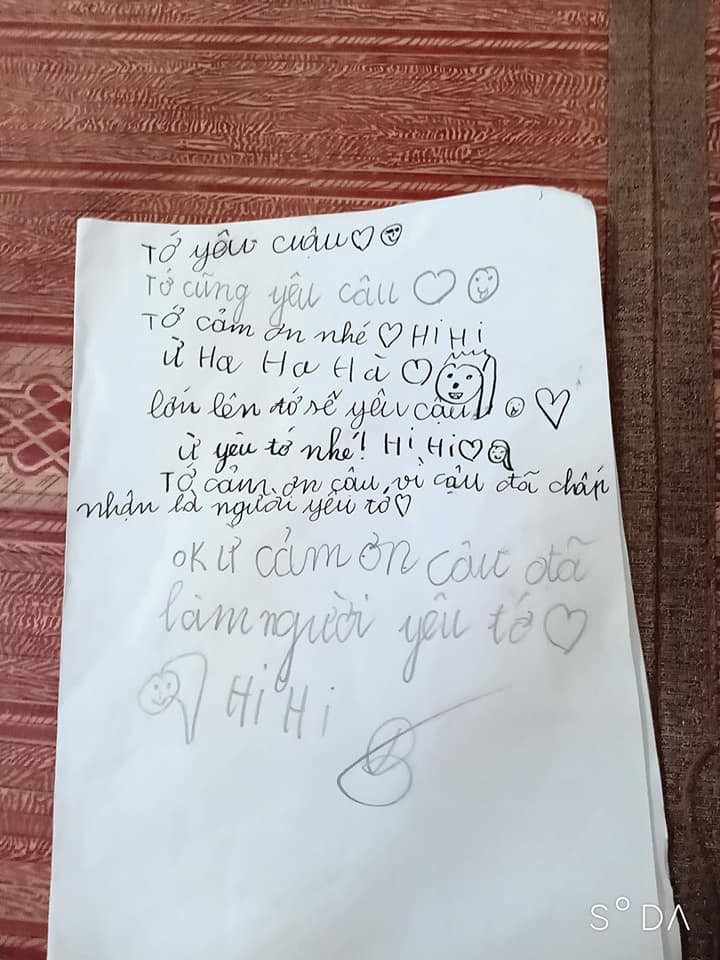 Tớ yêu cuậu♡
Tớ cũng yêu câu ♡
Tớ cảm ơn nhé ♡ Hi Hi
Ừ Ha Ha Hà ♡
lớn lên tớ sẽ yêu cậu ♡
ừ yêu tớ nhé! Hi Hi♡
Tớ cảm ơn câu, vì cậu đã chấp
nhận là người yêu tớ♡
OK Ừ cảm ơn câu đã
làm người yêu tớ♡
Hi Hi
SODA